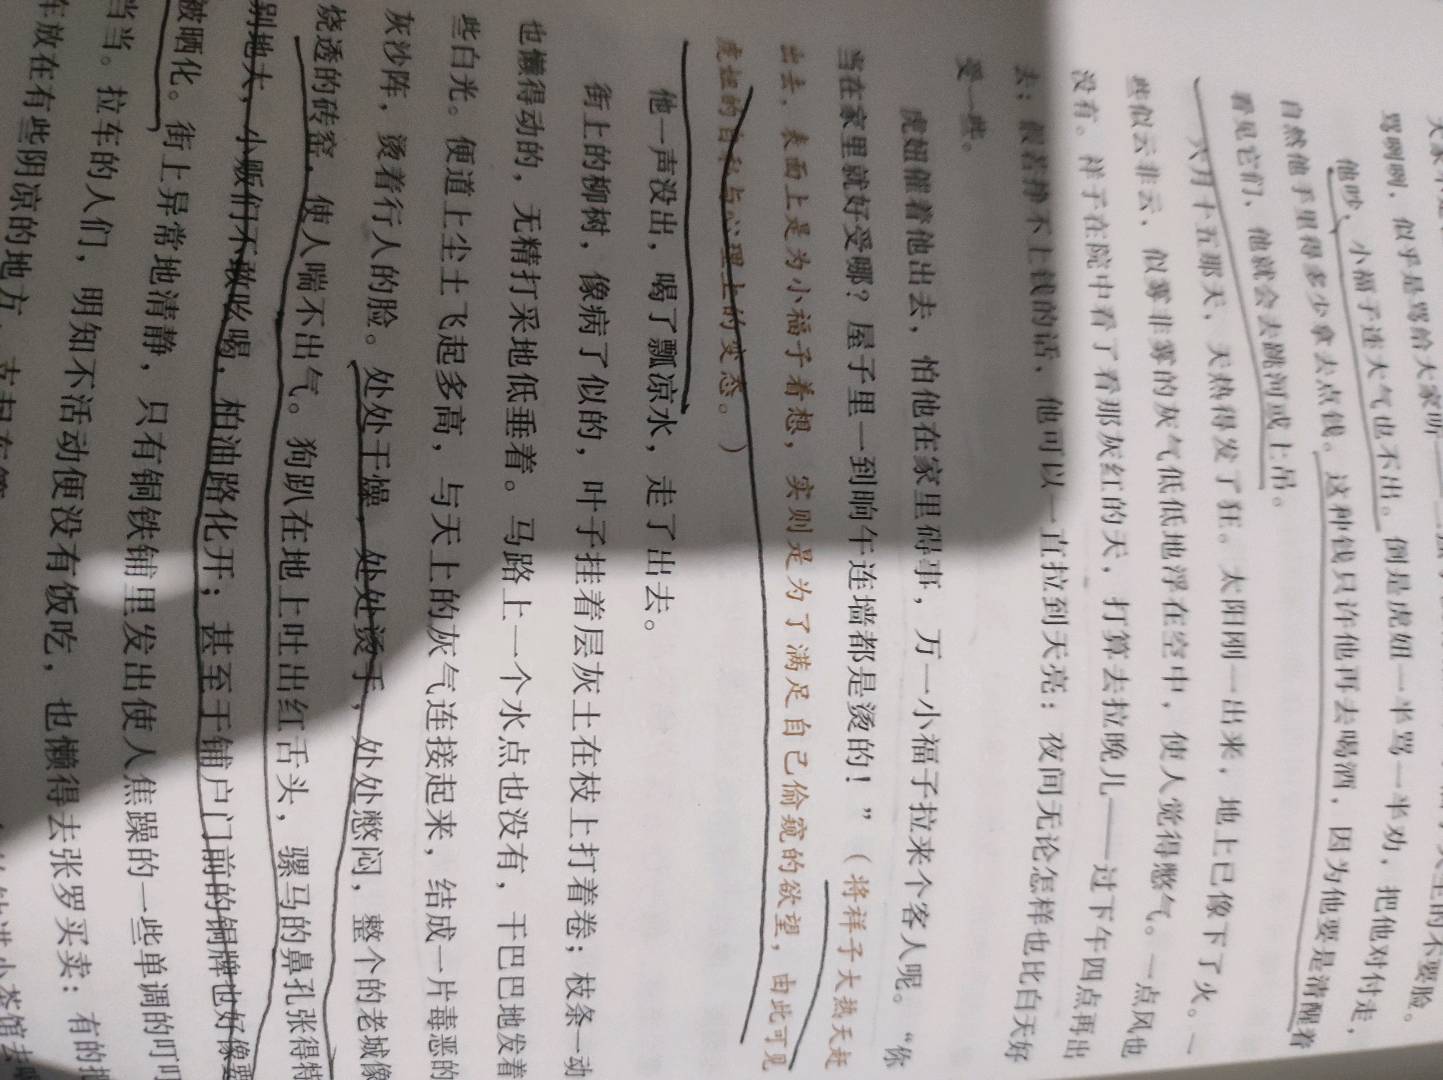 骂咧咧，似乎是骂给大家听——
他吵，小福子连大气也不出。倒是虎妞一半骂一半劝，把他对付走，
自然他手里得多少拿去点钱。这种钱只许他再去喝酒，因为他要是清醒着
看见它们，他就会去跳河或上吊。
六月十五那天，天热得发了狂。太阳刚一出来，地上已像下了火。一
些似云非云、似雾非雾的灰气低低地浮在空中，使人觉得憋气。一点风也
没有。祥子在院中看了看那灰红的天，打算去拉晚儿——过下午四点再出
去；假若挣不上钱的话，他可以一直拉到天亮：夜间无论怎样也比白天好
受一些。
虎妞催着他出去，怕他在家里碍事，万一小福子拉来个客人呢。“你
当在家里就好受哪？屋子里一到晌午连墙都是烫的！”（将祥子大热天赶
出去，表面上是为小福子着想，实则是为了满足自己偷窥的欲望，由此可见
虎妞的自私与心理上的变态。）
他一声没出，喝了瓢凉水，走了出去。
街上的柳树，像病了似的，叶子挂着层灰土在枝上打着卷；枝条一动
也懒得动的，无精打采地低垂着。马路上一个水点也没有，干巴巴地发着
些白光。便道上尘土飞起多高，与天上的灰气连接起来，结成一片毒恶的
灰沙阵，烫着行人的脸。处处干燥，处处烫手，处处憋闷，整个的老城像
烧透的砖窑，使人喘不出气。狗趴在地上吐出红舌头，骡马的鼻孔张得特
别地大，小贩们不敢吆喝，柏油路化开；甚至于铺户门前的铜牌也好像要
被晒化。街上异常地清静，只有铜铁铺里发出使人焦躁的一些单调的叮叮
当当。拉车的人们，明知不活动便没有饭吃，也懒得去张罗买卖：有的把
车放在有些阴凉的地方，支起车篷